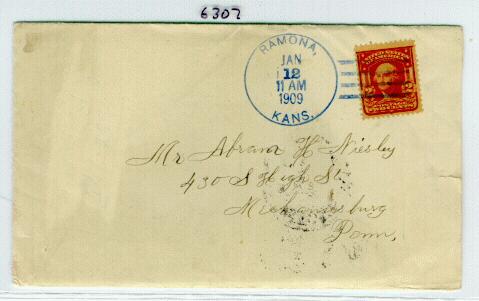 6307
RAMONA,
JAN
12
11 AM
1909
KANS.
UNITED STATES
OF AMERICA
2 2
POSTAGE
TWO CENTS
Mr Abram H Niesley
430 S High St
Mechanicsburg
Penn,